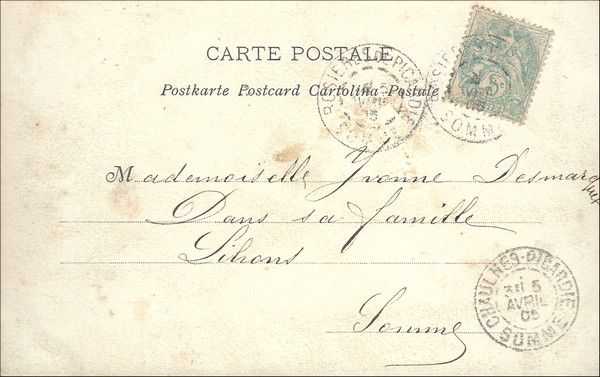 CARTE POSTALE
Postkarte Postcard Cartolina Postale
ROSIERES-DE-PICARDIE
SOMME
5
Mademoiselle Yvonne Desmarquex
Dans sa famille
Lihons
Somme
CHAULNES-PICARDIE
5
AVRIL
05
SOMME